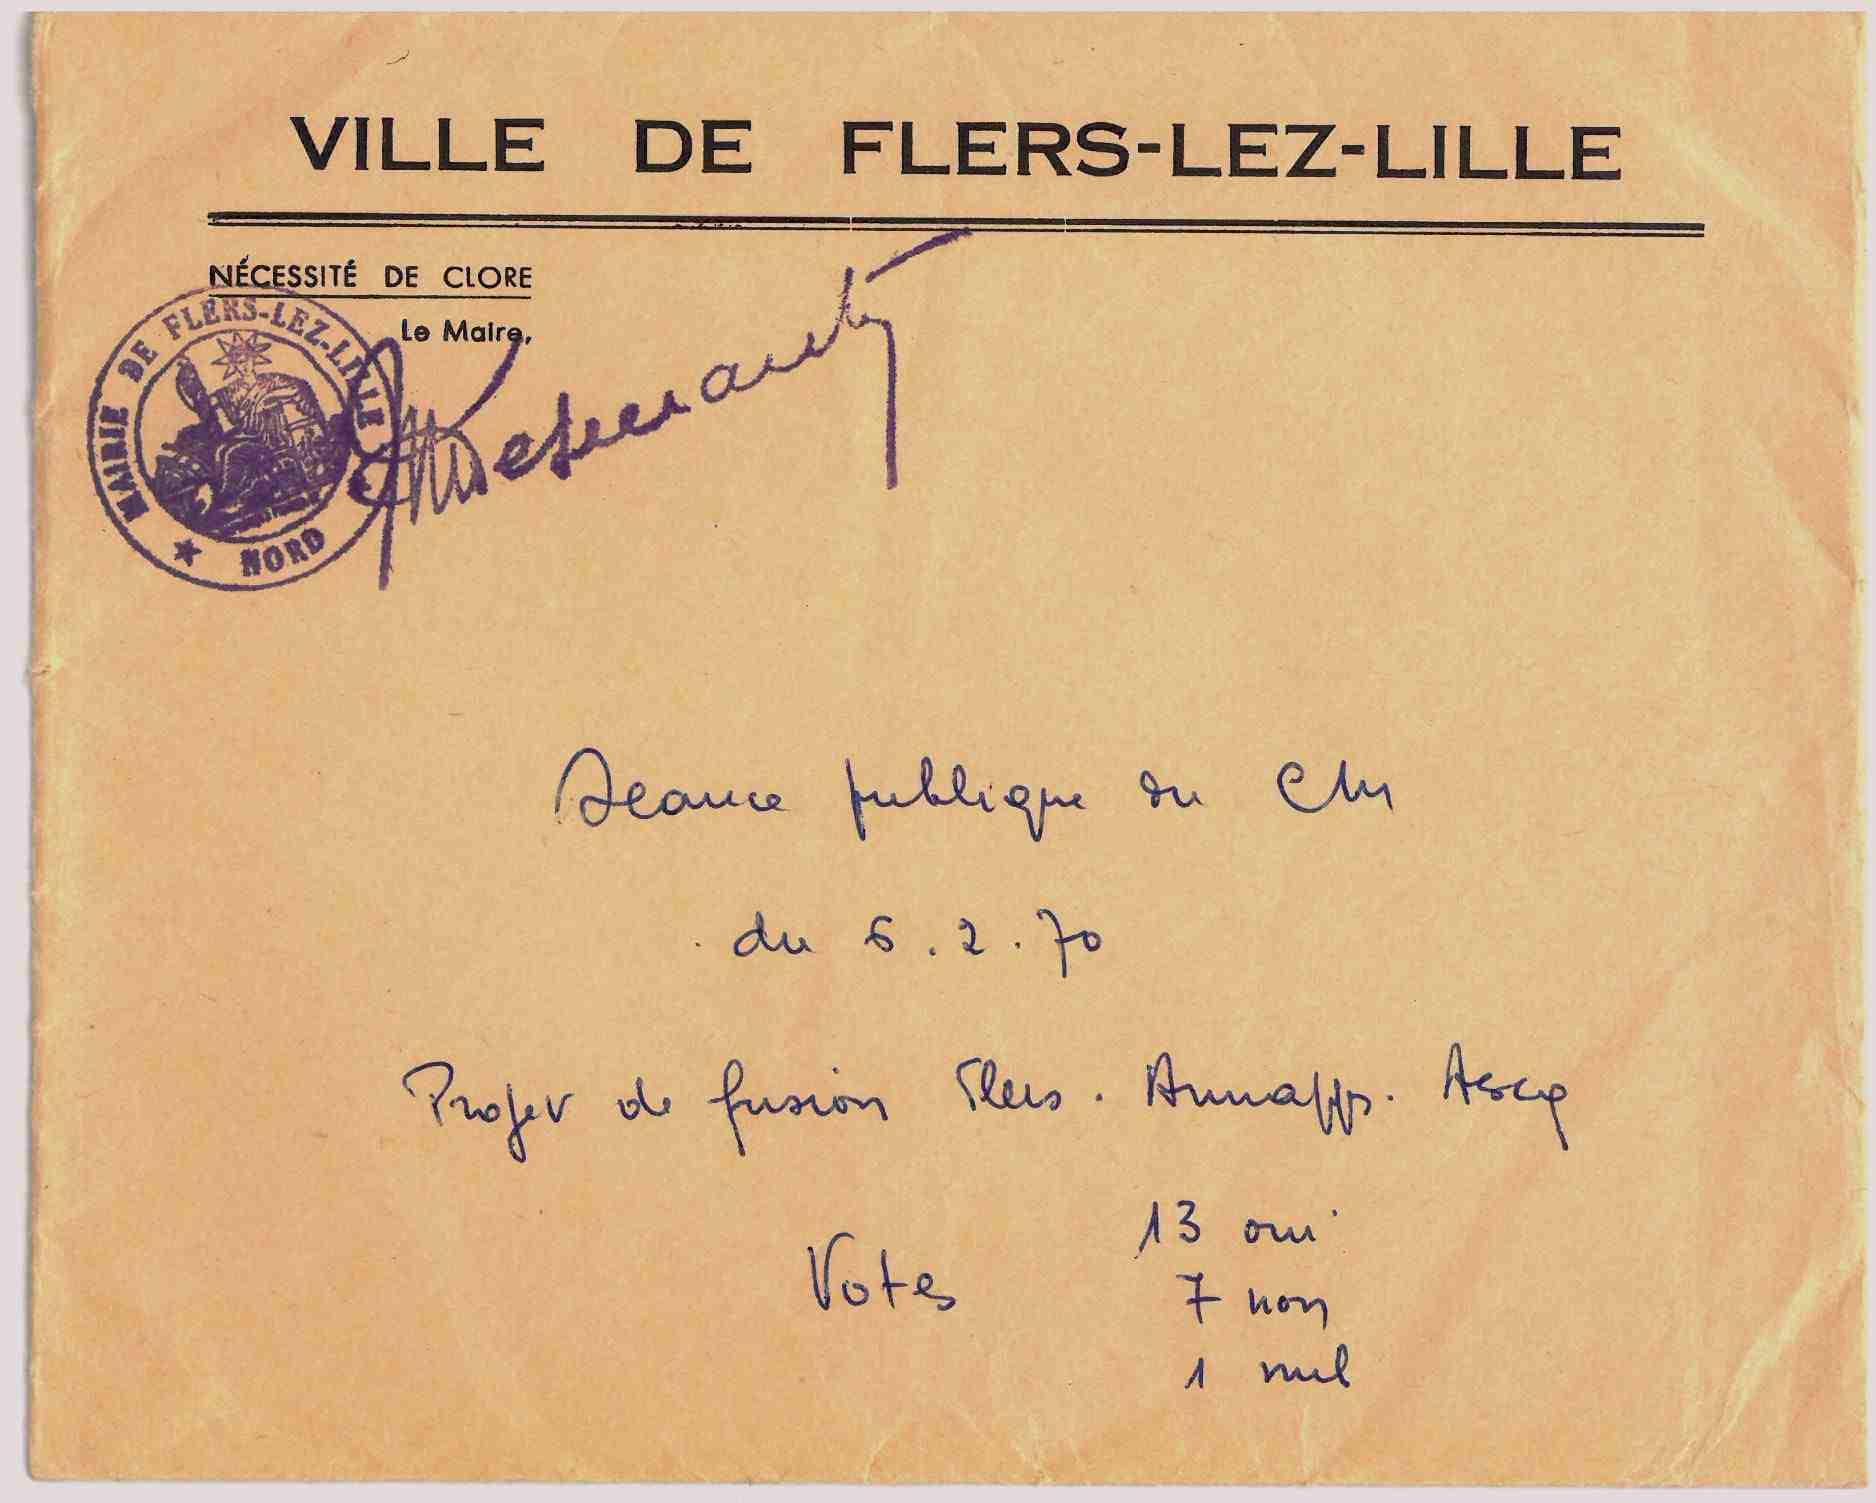 VILLE DE FLERS-LEZ-LILLE
NÉCESSITÉ DE CLORE
Le Maire,
MAIRIE DE FLERS-LEZ-LILLE
★ NORD
Séance publique du CM
du 6.2.70
Projet de fusion Flers. Annapps. Ascq
Votes
13 oui
7 non
1 nul